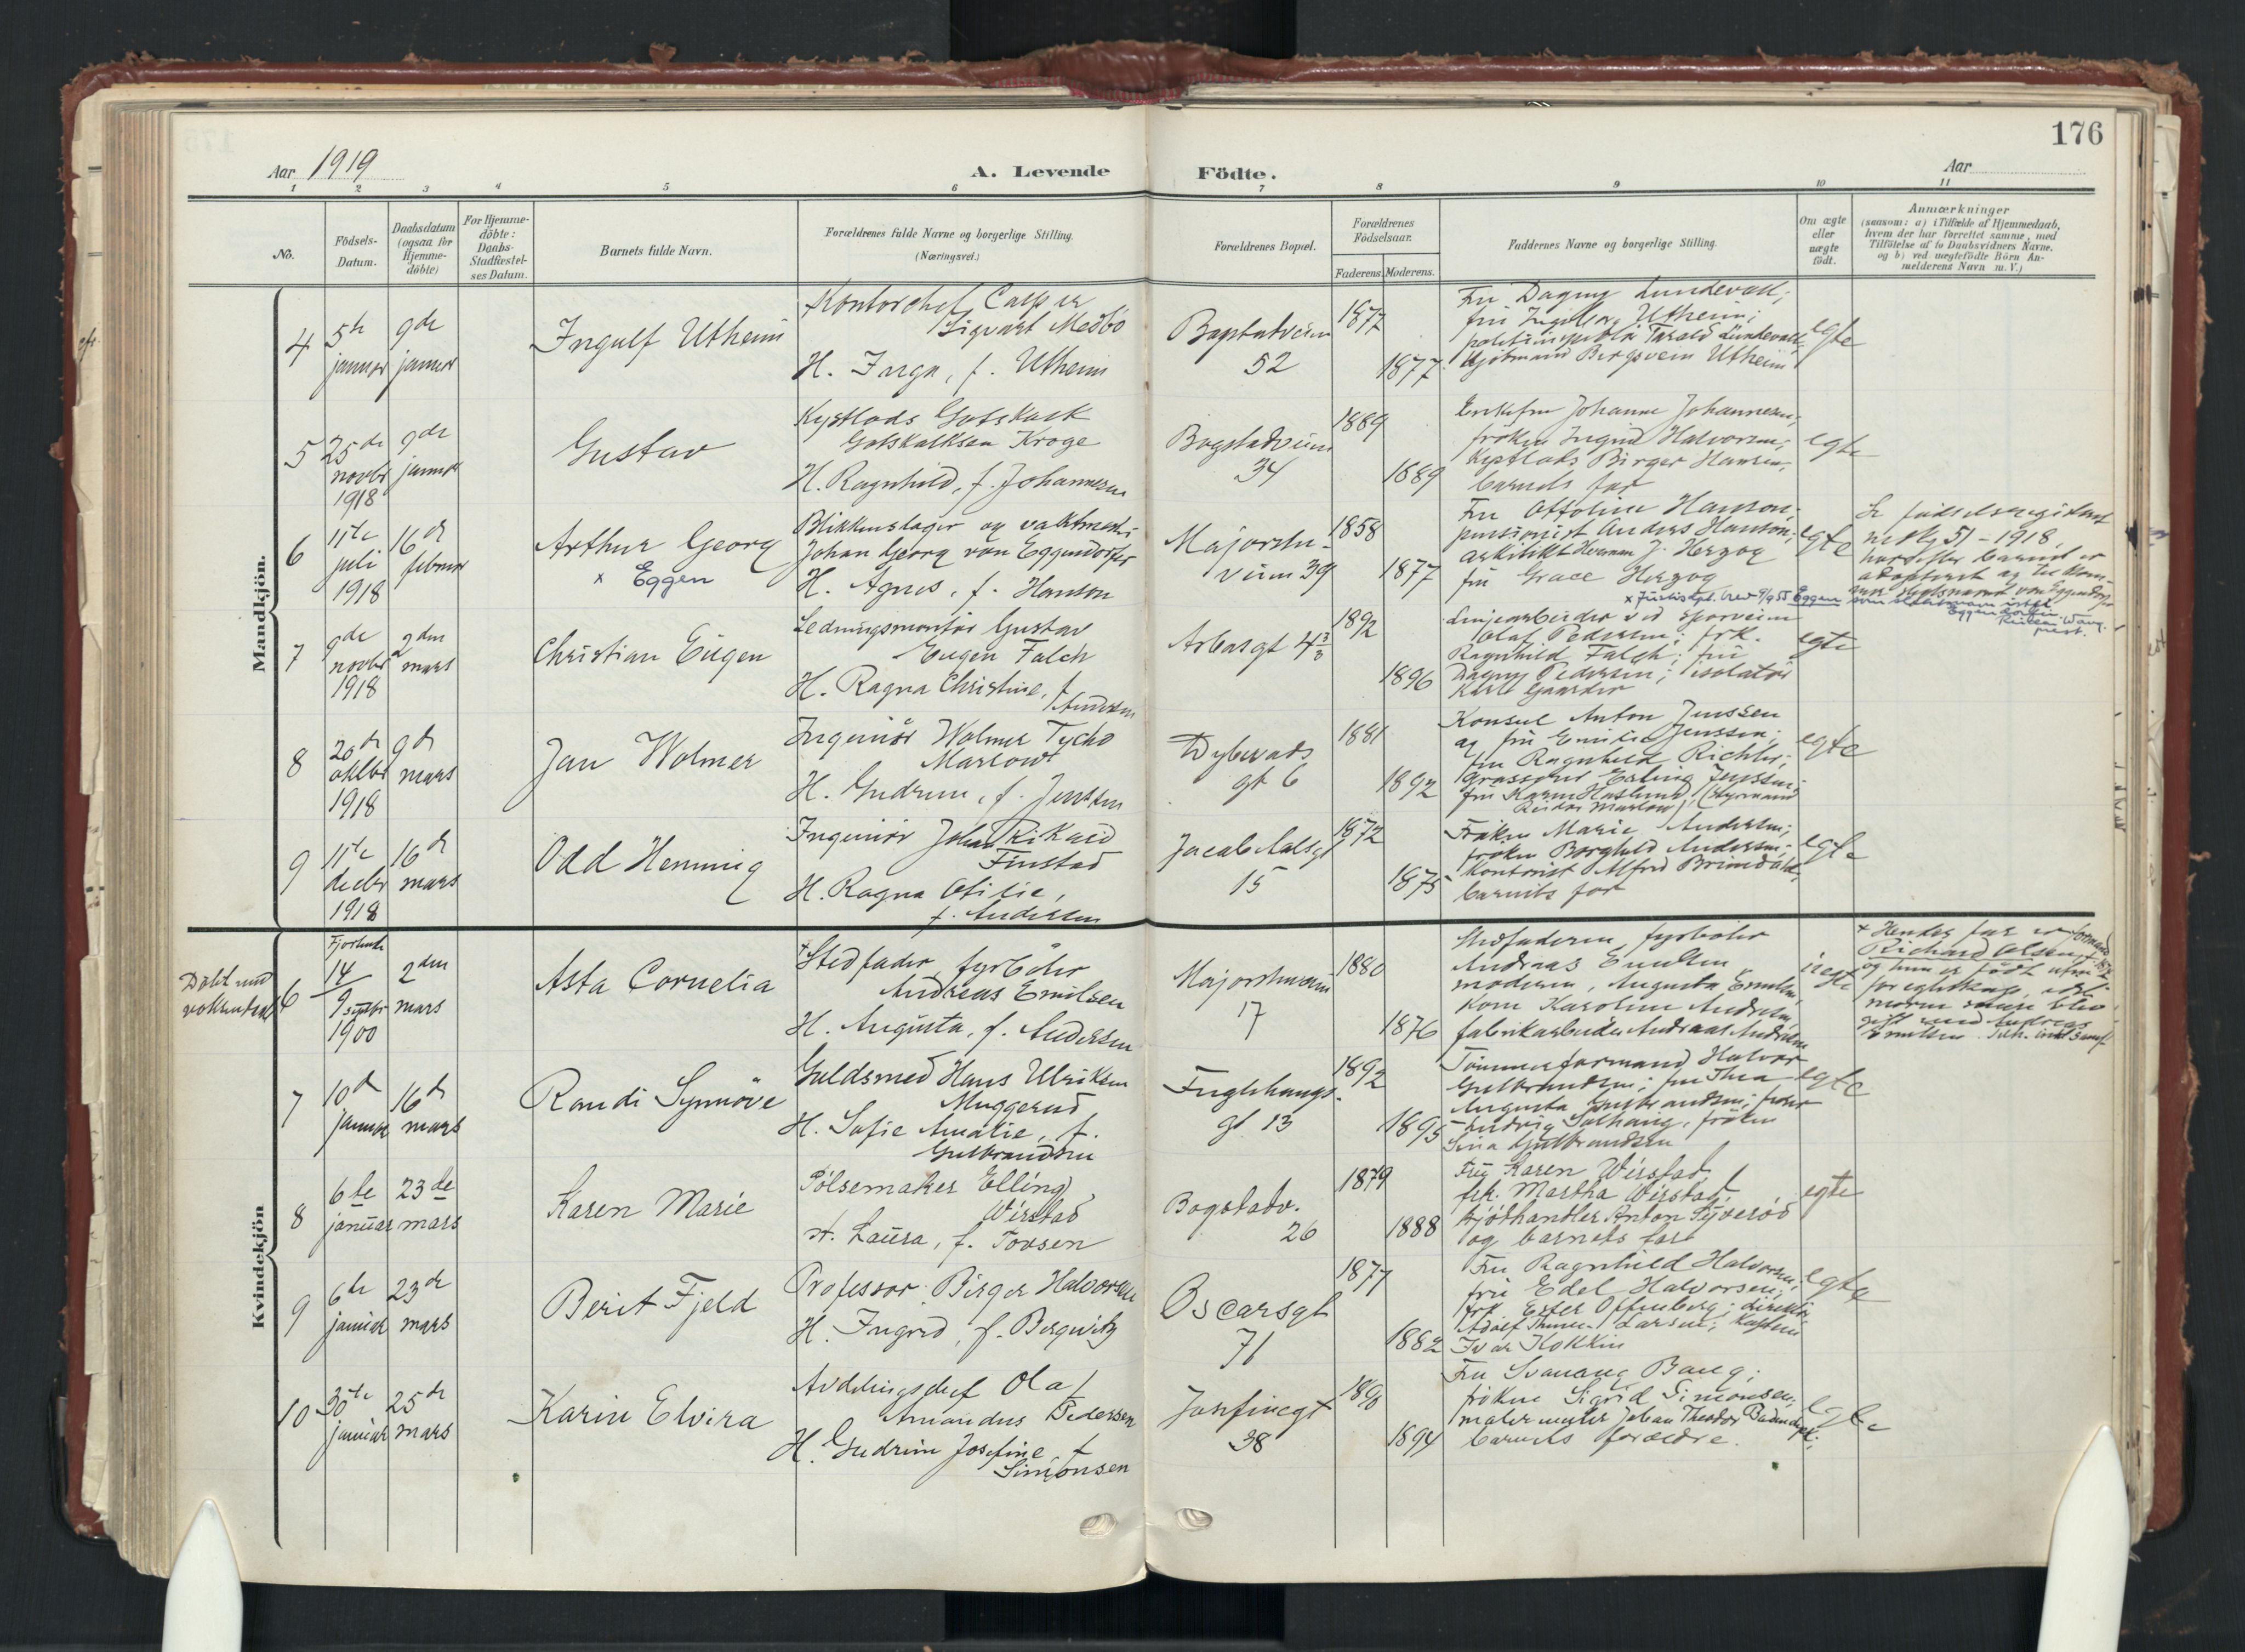 176
Aar 1919
A. Levende Födte.
Aar
1 2 3 4 5 6 7 8 9 10 11
No.
Födsels-Datum.
Daabsdatum (ogsaa for Hjemme-döbte)
For Hjemme-döbte: Daabs-Stadfæstel-ses Datum.
Barnets fulde Navn.
Forældrenes fulde Navne og borgerlige Stilling.
(Næringsvei.)
Forældrenes Bopæl.
Forældrenes Födselsaar.
Faderens. Moderens.
Faddernes Navne og borgerlige Stilling.
Om ægte eller uægte födt.
Anmærkninger
(saasom: a) i Tilfælde af Hjemmedaab, hvem der har forrettet samme, med Tilföielse af to Daabsvidners Navne, og b) ved uægtefödte Börn An-melderens Navn m. V.)
Mandkjön.
4
5te januar
9de januar
Ingulf Utheim
Kontorchef Casper
Sigvart Medbö
H. Inga, f. Utheim
Bogstadveien
52
1877
1877
Fru Dagny Lundevall;
fru Ingeborg Utheim;
Tarald Lundevall;
Bergsvein Utheim
egte
5
25de novbr 1918
9de januar
Gustav
Kystlods Gotskalk
Gotskalksen Kroge
H. Ragnhild, f. Johannesen
Bogstadveien
34
1889
1889
Enkefru Johanne Johannesen;
fröken Ingrid Halvorsen;
Kystlods Birger Hansen;
barnets far
egte
6
11te juli 1918
16de februar
Arthur Georg
x Eggen
Blikkenslager og vaktmester
Johan Georg von Eggendorfer
H. Agnes, f. Hanson
Majorstu-
veien 39
1858
1877
Fru Ottoline Hanson;
pensionist Anders Hanson;
arkitekt Herman J. Herzog
fru Grace Herzog
egte
Se fødselsregisteret
51 - 1918,
hvorefter barnet er
adoptert
x Justisdpt. brev 9/9 55 Eggen
7
9de novbr 1918
2den mars
Christian Eugen
Ledningsmontör Gustav
Eugen Falch
H. Ragna Christine, f.
Andersen
Arbosgt 4 3/3
1892
1896
Linjearbeider ved Sporveien
Olaf Pedersen; frk.
Ragnhild Falch; fru
Dagny Pedersen; isolatör
Karl Gaarder
egte
8
20de oktbr 1918
9de mars
Jan Wolmer
Ingeniör Wolmer Tycho
Marlow
H. Gudrun, f. Jenssen
Dybwads
gt 6
1881
1892
Konsul Anton Jenssen
og fru Emilie Jenssen;
fru Ragnhild Richter;
grosserer Erling Jenssen;
fru Karen Haslund; Styrmand
Reidar Marlow
egte
9
11te decbr 1918
16de mars
Odd Henning
Ingeniör Johan Rikard
Finstad
H. Ragna Otilie,
f. Andersen
Jacob Aalsgt
15
1872
1875
Fröken Marie Andersen;
fröken Borghild Andersen;
Kontorist Alfred
barnets far
egte
Kvindekjön
Döbt ved
voksen
6
Fjortende
14/9 septbr 1900
2den mars
Asta Cornelia
x Stedfader, fyrböter
Andreas Emilsen
H. Augusta, f. Andersen
Majorstuveien
17
1880
1876
Stedfaderen, fyrböter
Andreas Emilsen
moderen, Augusta Emilsen
Kone Karoline Andersen
fabrikarbeider Andreas Andersen
uegte
x Hendes far er formand
Richard Olsen,
og hun er födt uten-
for egteskap,
moren senere blev
gift med Andreas
Emilsen.
7
10de januar
16de mars
Randi Synnöve
Guldsmed Hans Ulriksen
Muggerud
H. Sofie Amalie, f.
Gulbrandsen
Fuglehaugs-
gt 13
1892
1895
Tömmerformand Halvor
Gulbrandsen; fru Thea
Augusta Gulbrandsen;
Ludvig Solhaug, fröken
Gulbrandsen
egte
8
6te januar
23de mars
Karen Marie
Pölsemaker Elling
Wirstad
H. Laura, f. Tovsen
Bogstadv.
26
1879
1888
Fru Karen Wirstad
frk. Martha Wirstad;
Kjöthandler Anton Syveröd
og barnets far
egte
9
6te januar
23de mars
Berit Fjeld
Professor Birger Halvorsen
H. Ingrid, f. Bergwitz
Oscarsgt
71
1877
1882
Fru Ragnhild Halvorsen;
fru Edel Halvorsen;
frk. Ester Offenberg; direktör
Adolf Thune-Larsen; Kaptein
Ivar Kokkin
egte
10
30te januar
25de mars
Karin Elvira
Avdelingschef Olaf
Amandus Pedersen
H. Gudrun Josefine, f.
Simonsen
Josefinegt
38
1890
1894
Fru Svanaug Bang;
fröken Sigrid Simonsen;
malermester Johan Theodor
barnets forældre.
egte